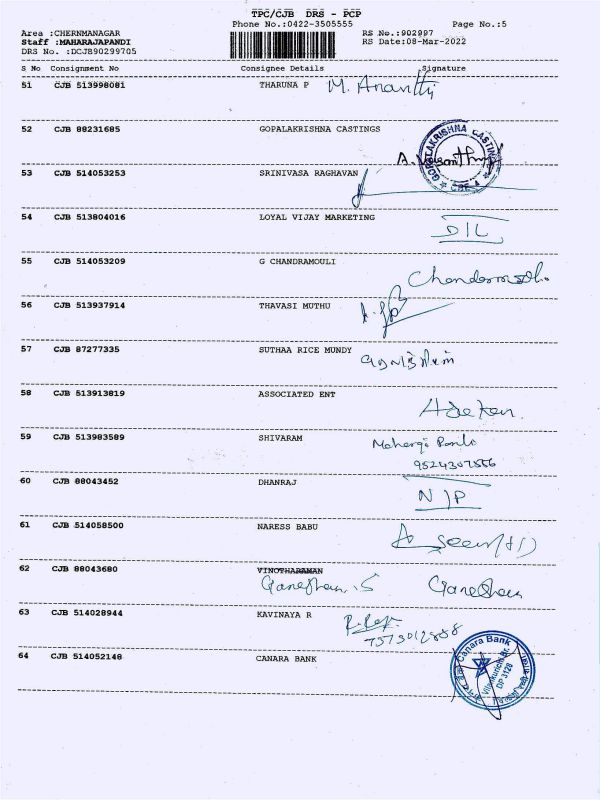 TPC/CJB DRS - PCP
Phone No.:0422-3505555 Page No.:5
Area :CHERNMANAGAR RS No.:902997
Staff :MAHARAJAPANDI RS Date:08-Mar-2022
DRS No. :DCJB90299705
S No Consignment No Consignee Details Signature
51 CJB 513998081 THARUNA P M. Ananthi
52 CJB 88231685 GOPALAKRISHNA CASTINGS
GOPALAKRISHNA CASTINGS
CBE-4
53 CJB 514053253 SRINIVASA RAGHAVAN
54 CJB 513804016 LOYAL VIJAY MARKETING
DIL
55 CJB 514053209 G CHANDRAMOULI
56 CJB 513937914 THAVASI MUTHU
57 CJB 87277335 SUTHAA RICE MUNDY
58 CJB 513913819 ASSOCIATED ENT
59 CJB 513983589 SHIVARAM
60 CJB 88043452 DHANRAJ
61 CJB 514058500 NARESS BABU
62 CJB 88043680 VINOTHARAMAN
Ganeshan. S Ganeshan
63 CJB 514028944 KAVINAYA R
64 CJB 514052148 CANARA BANK
Canara Bank
DP 3128